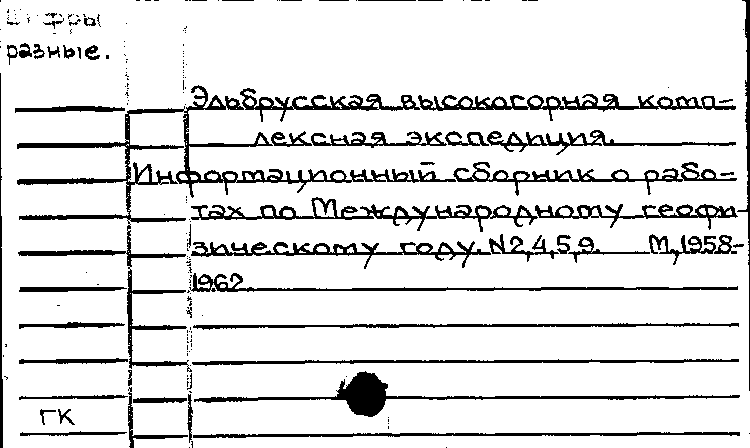 Шифры
разные.
Эльбрусская высокогорная комп-
лексная экспедиция.
Информационный сборник о рабо-
тах по Международному геофи-
зическому году. N2,4,5,9. М,1958-
1962.
ГК